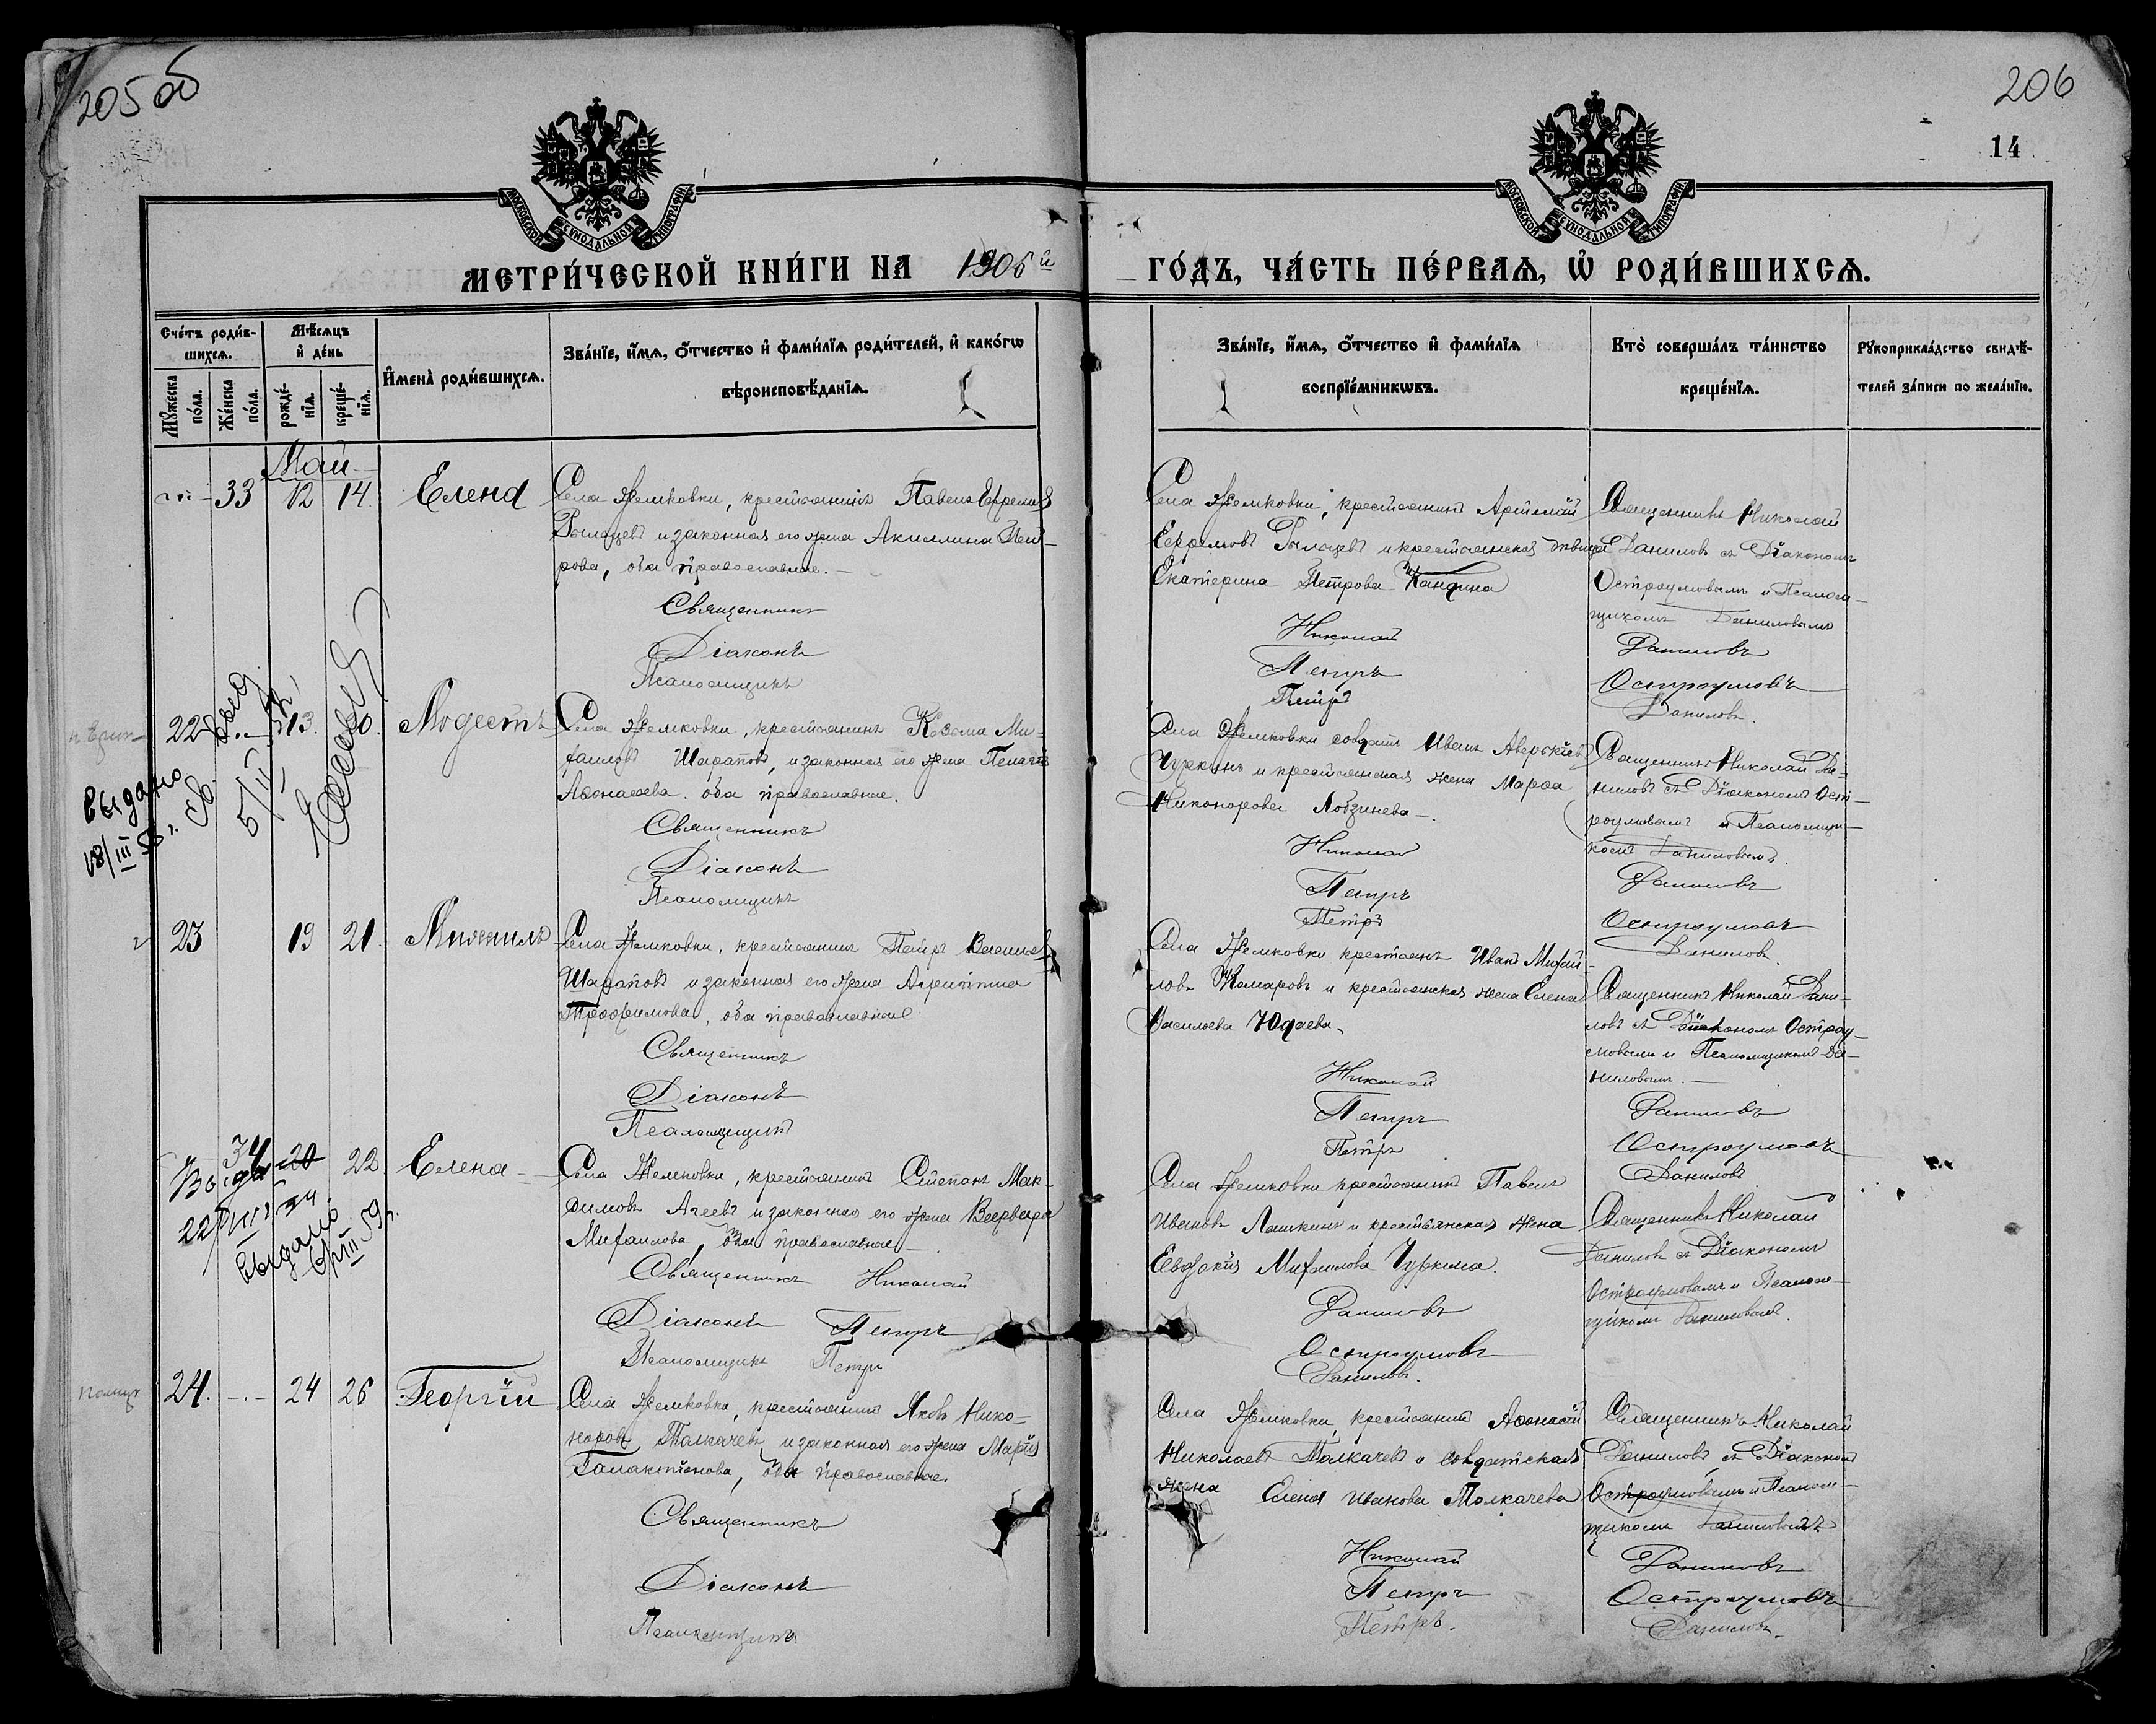 205 об
206
14
МОСКОВСКОЙ СѴНОДАЛЬНОЙ ТИПОГРАФІИ
МОСКОВСКОЙ СѴНОДАЛЬНОЙ ТИПОГРАФІИ
МЕТРИ́ЧЕСКОЙ КНИ́ГИ НА 1906й ГО́ДЪ, ЧА́СТЬ ПЕ́РВАѦ, Ѡ҆ РОДИ́ВШИХСѦ.
Сче́тъ роди́в-
шихсѧ.
Мѣ́сѧцъ
и҆ де́нь
Мꙋжеска по́ла.
Же́нска по́ла.
рожде́-
нїѧ.
креще́-
нїѧ.
И҆мена̀ роди́вшихсѧ.
Зва́нїе, и҆́мѧ, ѻ҆́тчество и҆ фами́лїѧ роди́телей, и҆ како́гѡ
вѣроисповѣ́данїѧ.
Зва́нїе, и҆́мѧ, ѻ҆́тчество и҆ фами́лїѧ
воспрїе́мникѡвъ.
Кто̀ соверша́лъ та́инство
креще́нїѧ.
Рꙋкоприкла́дство свидѣ́-
телей за́писи по жела́нїю.
Май
33 12 14. Елена
Села Жемковки, крестьянинъ Павелъ Ефремовъ
и законная его жена Акилина Пет-
рова, оба православные.
Священникъ
Діаконъ
Псаломщикъ
Села Жемковки, крестьянинъ Артемій
Ефремовъ и крестьянская девица
Екатерина Петрова
Николай
Петръ
Петръ
Священникъ Николай
Даниловъ съ Діакономъ
Остроумовымъ и Псалом-
щикомъ Даниловымъ
Даниловъ
Остроумовъ
Даниловъ.
22 13. Модестъ
выдано
18/III
5/II
Села Жемковки, крестьянинъ Козьма Ми-
хаиловъ Шараповъ, и законная его жена Пелагія
Афонасьева. оба православные.
Священникъ
Діаконъ
Псаломщикъ
Села Жемковки солдатъ Иванъ Аверкіевъ
Чуркинъ и крестьянская жена Марфа
Никонорова
Николай
Петръ
Петръ
Священникъ Николай Да-
ниловъ съ Діакономъ Ост-
роумовымъ и Псаломщи-
комъ Даниловымъ.
Даниловъ
Остроумовъ
Даниловъ.
23 19 21. Михаилъ
Села Жемковки, крестьянинъ Петръ Васильевъ
Шараповъ и законная его жена Агрипина
Трофимова, оба православные
Священникъ
Діаконъ
Псаломщикъ
Села Жемковки крестьянъ Иванъ Михай-
ловъ Комаровъ и крестьянская жена Елена
Васильева Юдаева.
Николай
Петръ
Петръ
Священникъ Николай Дани-
ловъ съ Діакономъ Остроу-
мовымъ и Псаломщикомъ Да-
ниловымъ.
Даниловъ
Остроумовъ
Даниловъ
34 20 22. Елена
22/VIII 34
выдано
59 г.
Села Жемковки, крестьянинъ Степанъ Мак-
симовъ Агеевъ и законная его жена Варвара
Михаилова, оба православные
Священникъ Николай
Діаконъ Петръ
Псаломщикъ Петръ
Села Жемковки крестьянинъ Павелъ
Ивановъ Лашкинъ и крестьянская жена
Евдокія Михаилова Чуркина.
Даниловъ
Остроумовъ
Даниловъ.
Священникъ Николай
Даниловъ съ Діакономъ
Остроумовымъ и Псалом-
щикомъ Даниловымъ.
24. 24 26 Георгій
Села Жемковки, крестьянинъ Яковъ Нико-
норовъ Толкачевъ и законная его жена Марія
Галактіонова, оба православные.
Священникъ
Діаконъ
Псаломщикъ
Села Жемковки, крестьянинъ Афонасій
Николаевъ Толкачевъ и солдатская
жена Елена Иванова Толкачева
Николай
Петръ
Петръ.
Священникъ Николай
Даниловъ съ Діакономъ
Остроумовымъ и Псалом-
щикомъ Даниловымъ
Даниловъ
Остроумовъ
Даниловъ.